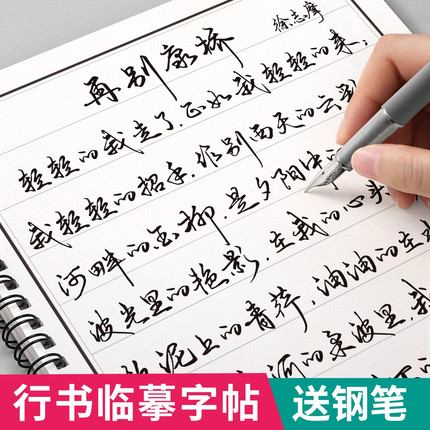 再别康桥
徐志摩
轻轻的我走了，正如我轻轻的来；
我轻轻的招手，作别西天的云彩
河畔的金柳，是夕阳中
波光里的艳影，在我的心头
泥上的青荇，油油的在
河的柔波里，我
行书临摹字帖
送钢笔